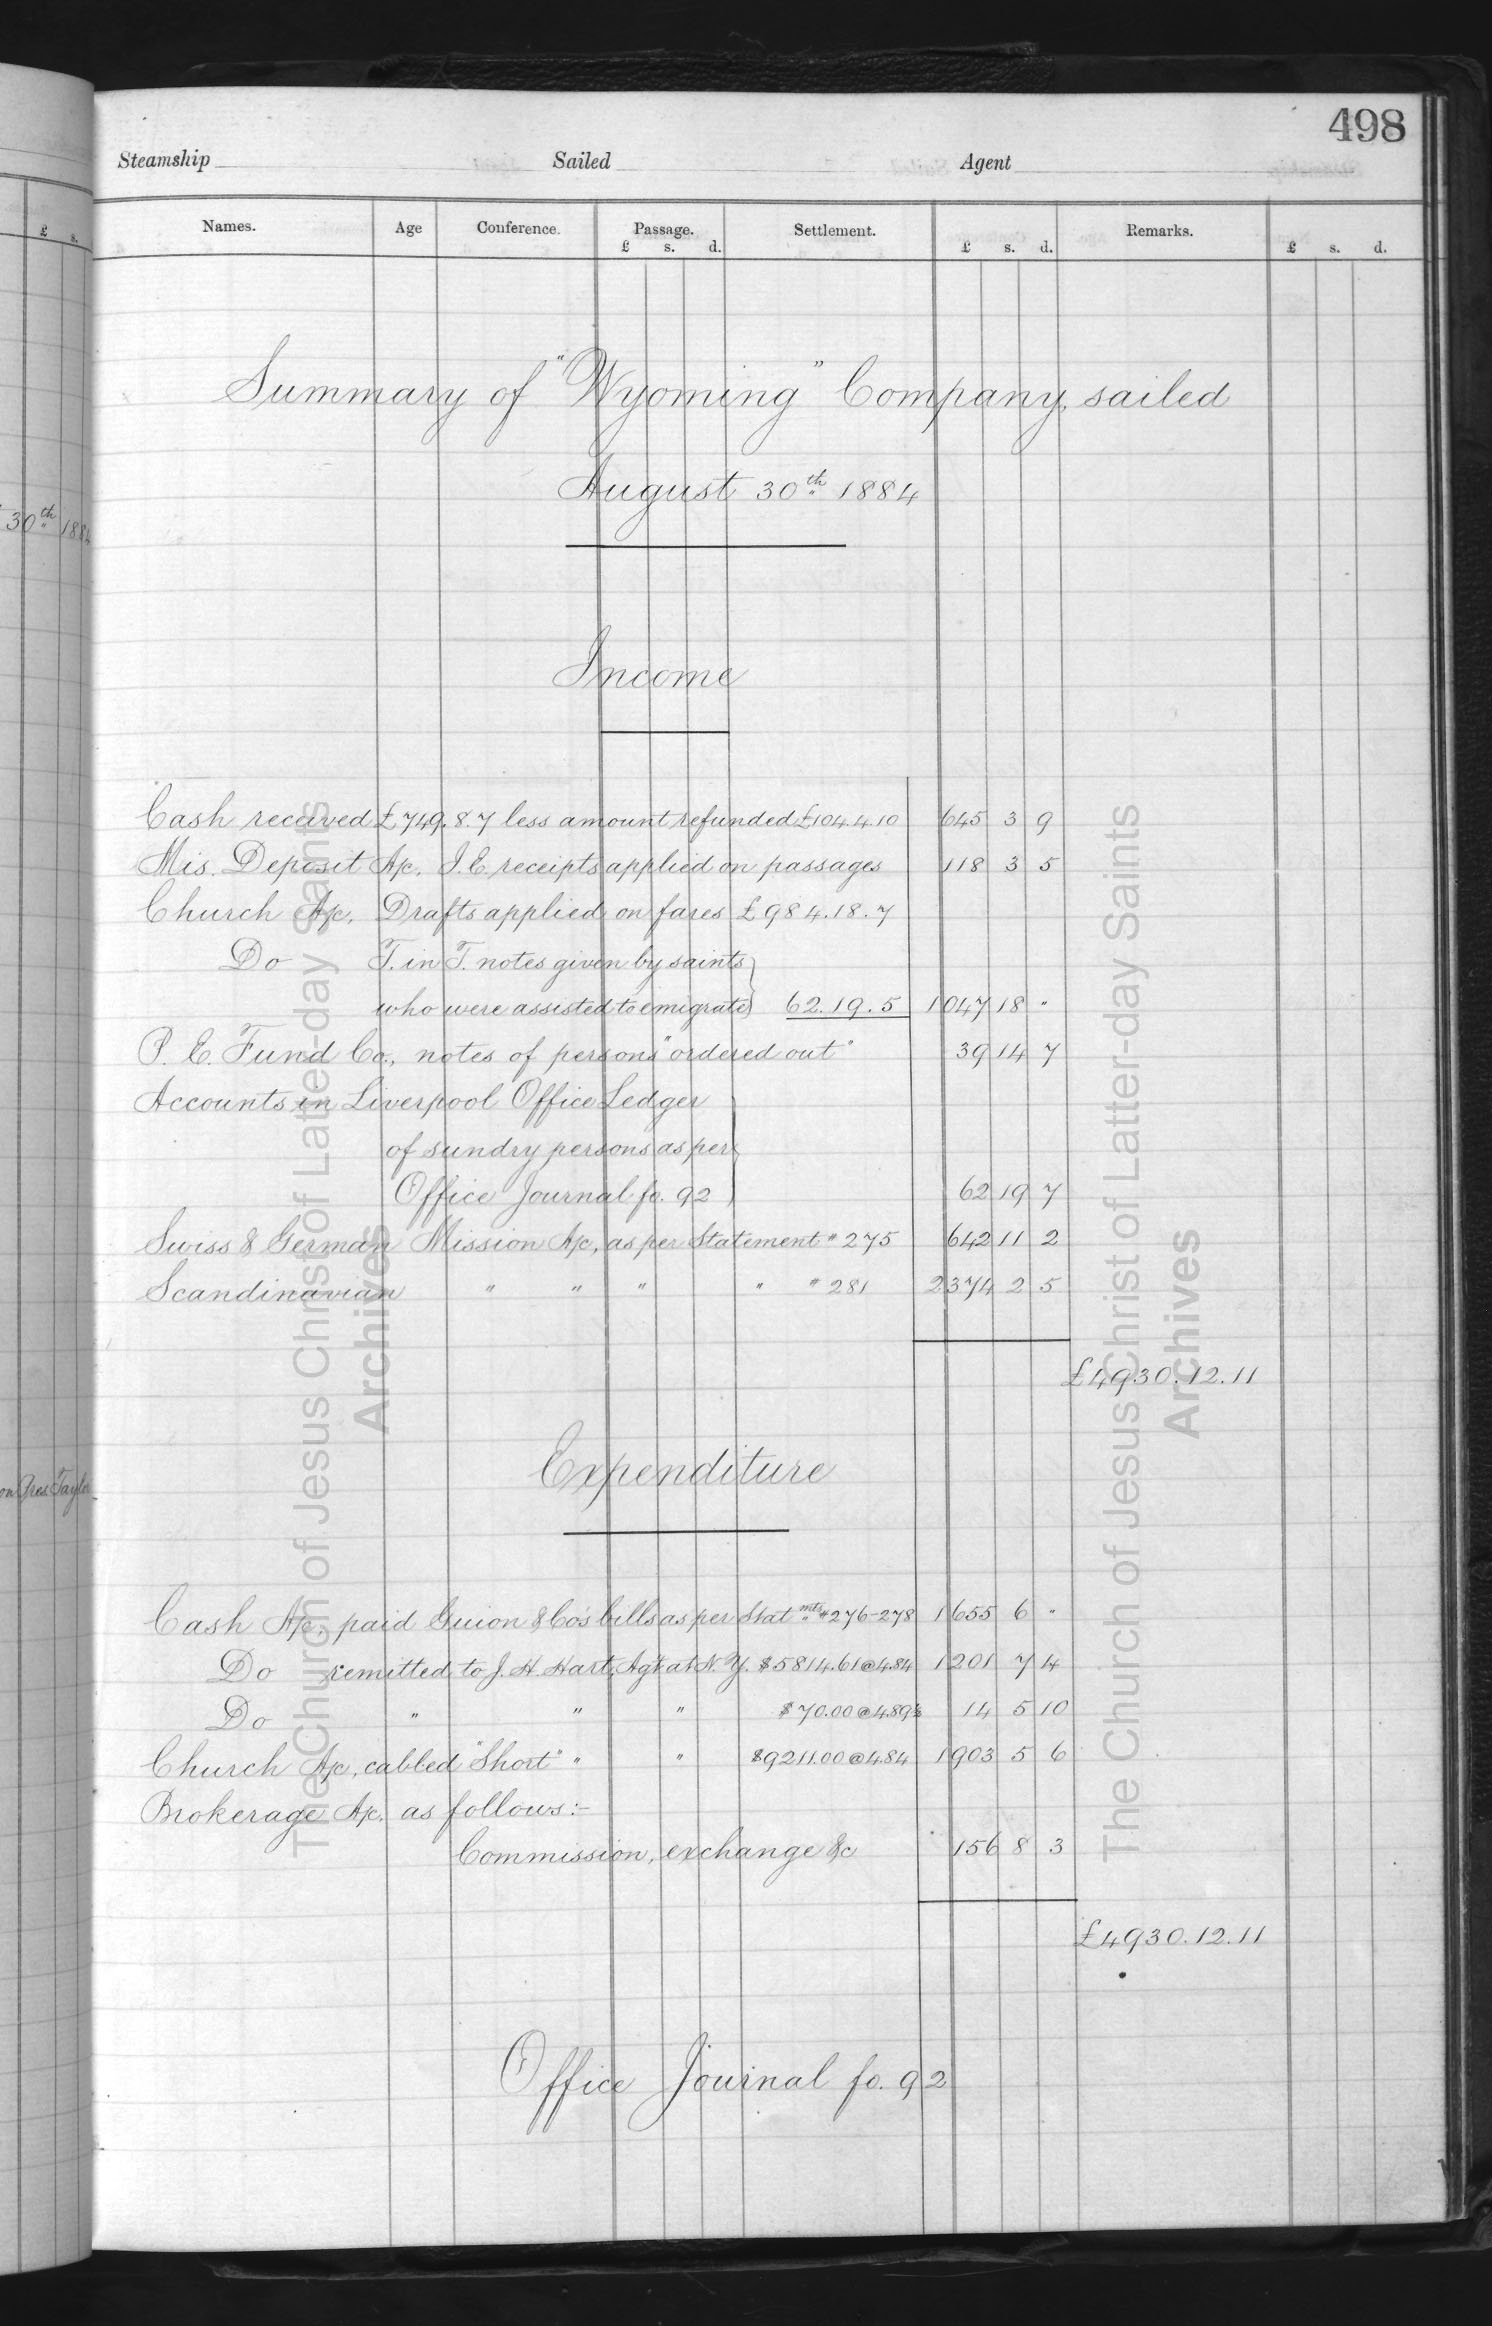 498
Steamship Sailed Agent
Names. Age Conference. Passage. Settlement. Remarks.
£ s. £ s. d. £ s. d. £ s. d.
Summary of "Wyoming" Company, sailed
August 30th 1884
30th 1884
Income
Cash received £749.8.7 less amount refunded £104.4.10 645 3 9
Mis. Deposit A/c, I.E. receipts applied on passages 118 3 5
Church A/c, Drafts applied on fares £984.18.7
Do T. in T. notes given by saints
who were assisted to emigrate 62.19.5 1047 18 "
P. E. Fund Co., notes of persons "ordered out" 39 14 7
Accounts in Liverpool Office Ledger
of sundry persons as per
Office Journal fo. 92 62 19 7
Swiss & German Mission A/c, as per Statement # 275 642 11 2
Scandinavian " " " " # 281 2374 2 5
£4930.12.11
Expenditure
on Pres. Taylor
Cash A/c, paid Guion & Co's bills as per Statmts #276-278 1655 6 "
Do remitted to J. H. Hart, Agt at N. Y. $5814.61 @ 4.84 1201 7 4
Do " " " $70.00 @ 4.89½ 14 5 10
Church A/c, cabled "Short" " " $9211.00 @ 4.84 1903 5 6
Brokerage A/c. as follows:-
Commission, exchange &c 156 8 3
£4930.12.11
Office Journal fo. 92
The Church of Jesus Christ of Latter-day Saints
Archives
The Church of Jesus Christ of Latter-day Saints
Archives